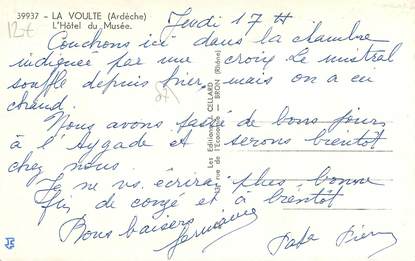 39937 - LA VOULTE (Ardèche)
L'Hôtel du Musée.
12€
Jeudi 17 H
Couchons ici dans la chambre
indiquée par une croix Le mistral
souffle depuis hier, mais on a eu
chaud.
Nous avons passé de bons jours
à l'Aygade et serons bientôt
chez nous.
Je ne vs. écrirai plus, bonne
fin de congé et à bientôt
Bons baisers
Germaine
Papa Pierre
Les Editions CELLARD
rue de l'Economie - BRON (Rhône)